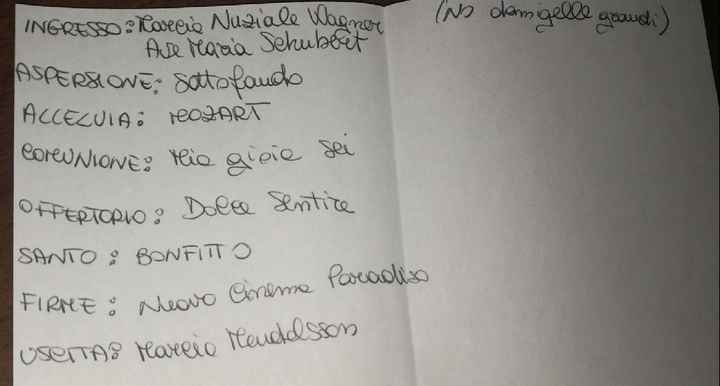 INGRESSO: Marcia Nuziale Wagner (No damigelle grandi)
Ave Maria Schubert
ASPERSIONE: Sottofondo
ALLELUIA: MOZART
COMUNIONE: Mia gioia sei
OFFERTORIO: Dolce Sentire
SANTO: BONFITTO
FIRME: Nuovo Cinema Paradiso
USCITA: Marcia Mendelsson